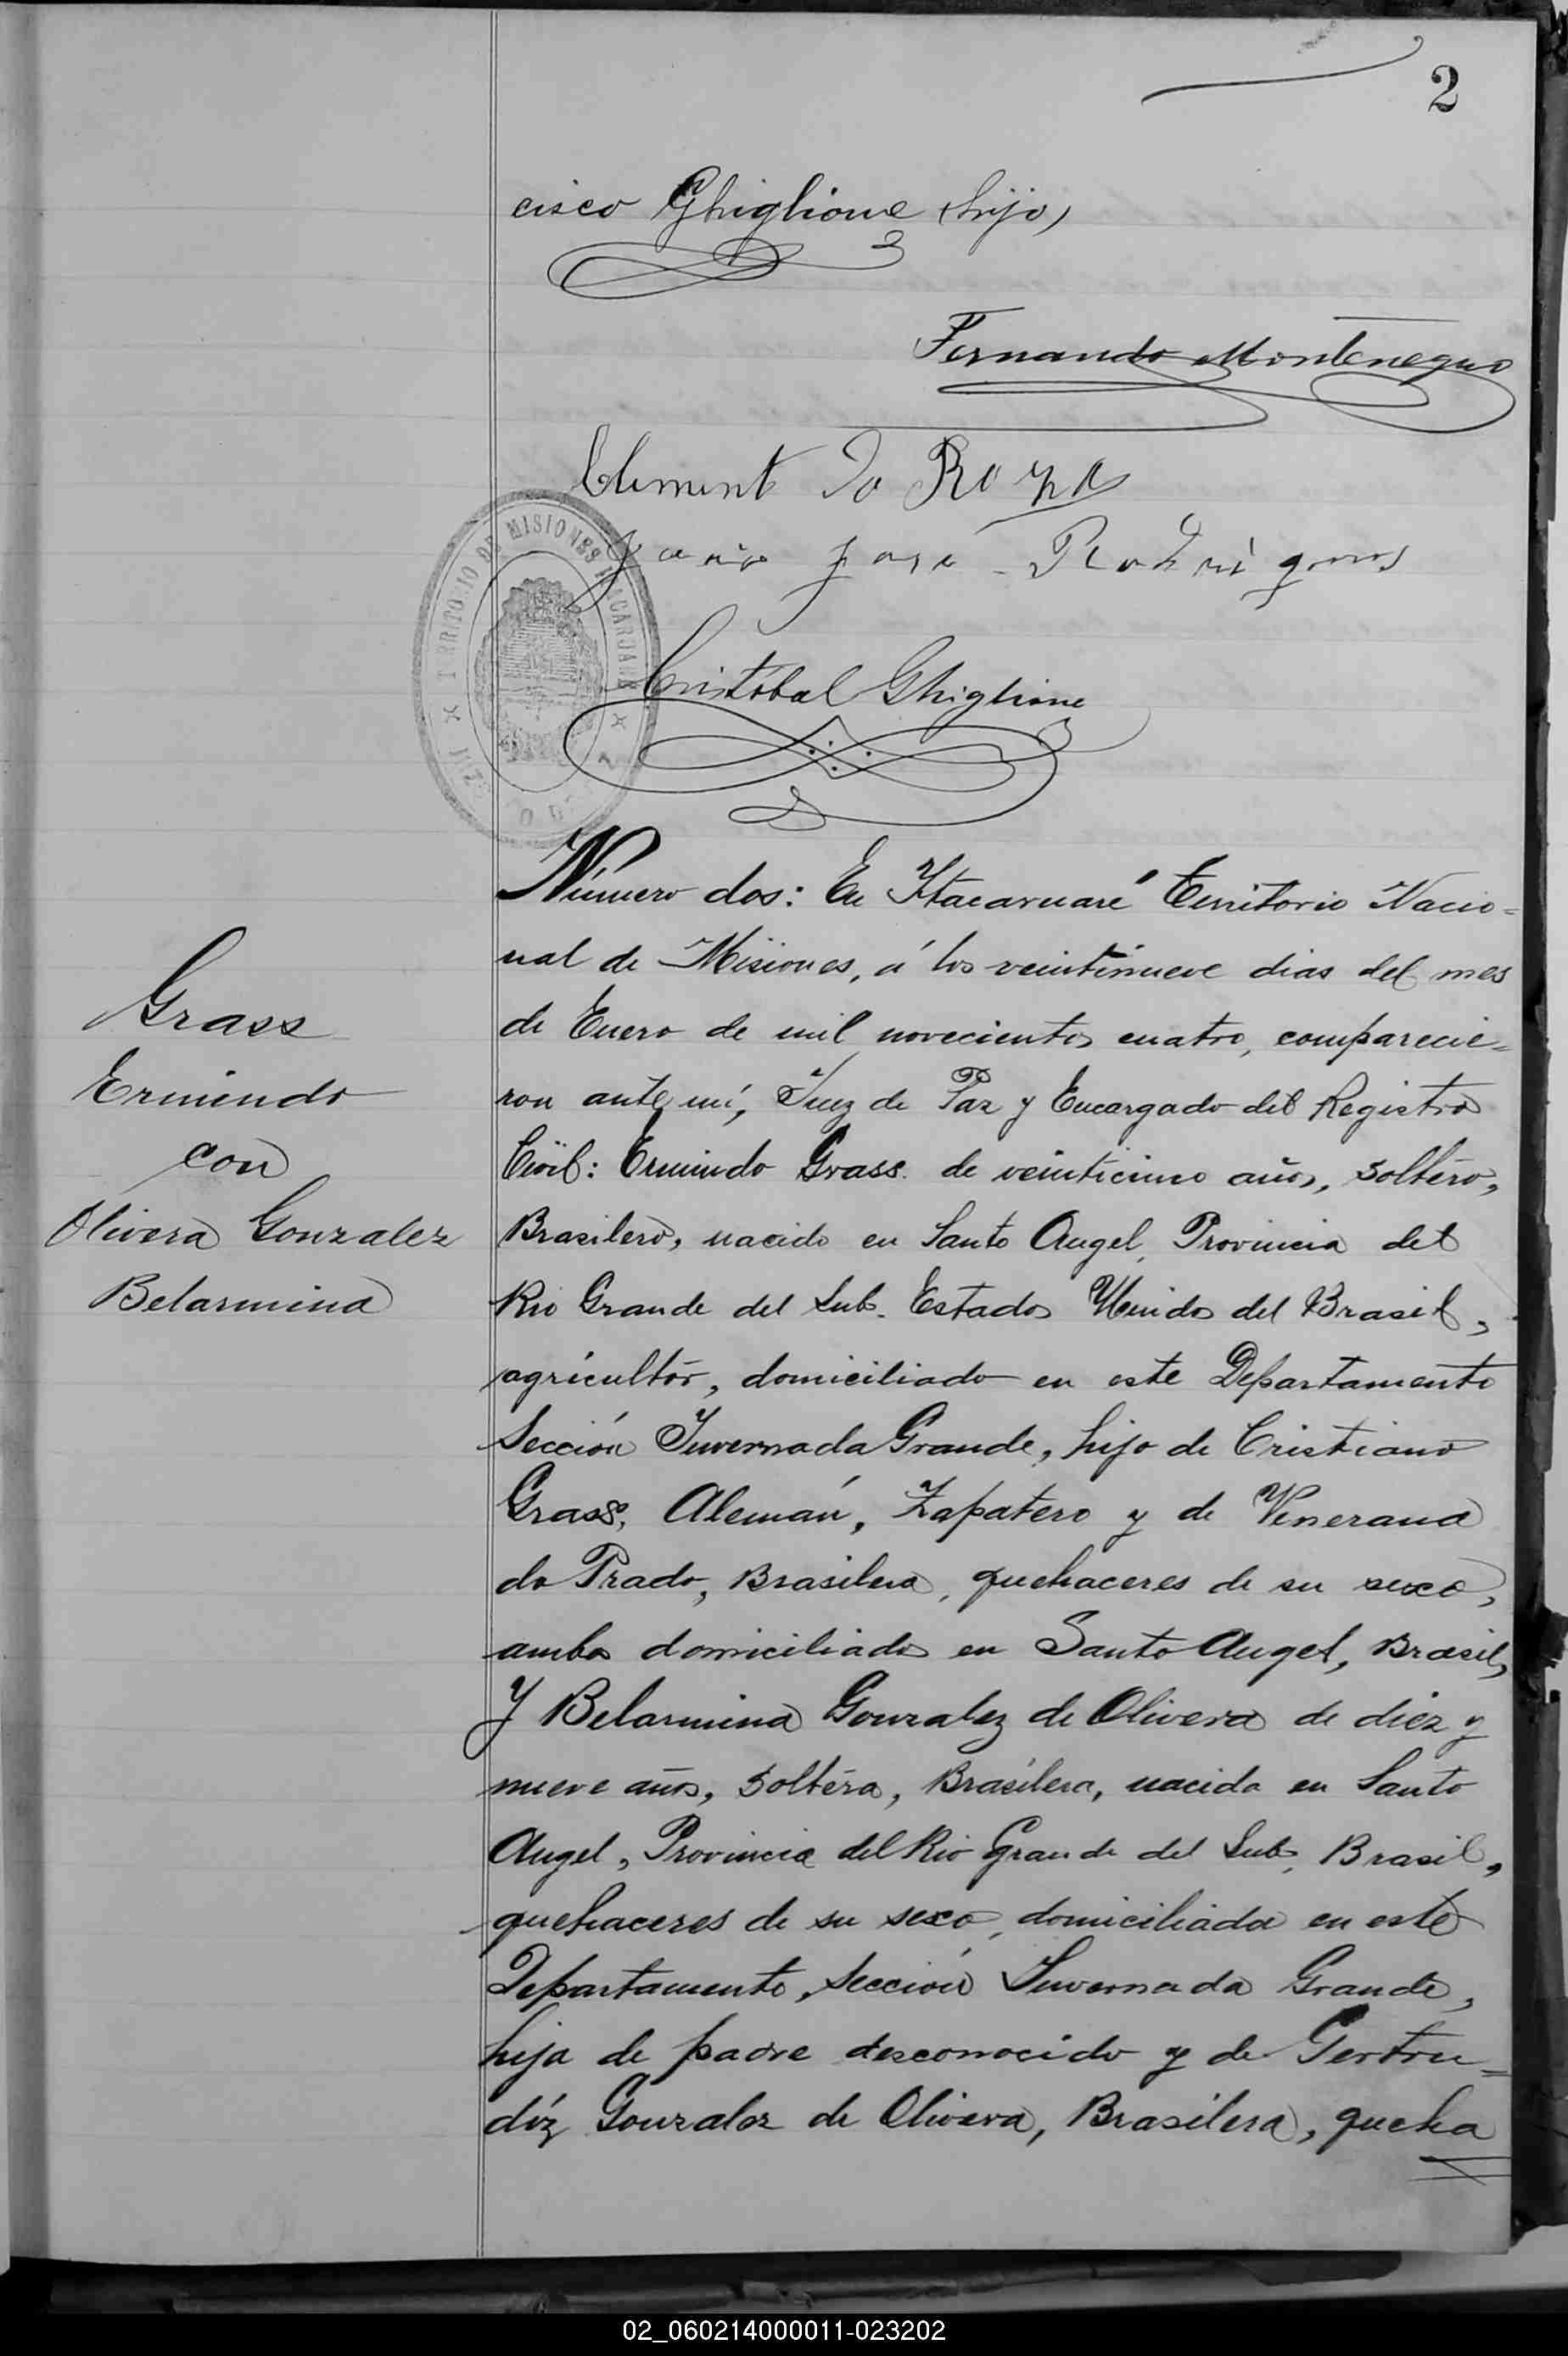 2
cisco Ghiglione (hijo)
Fernando Montenegro
Clement do Roza
José Rodrigues
TERRITORIO DE MISIONES ITACARUARE
Cristobal Ghiglione
Número dos: En Itacaruaré Territorio Nacio=
nal de Misiones, á los veintinueve dias del mes
de Enero de mil novecientos cuatro, comparecie=
ron ante mí, Juez de Paz y Encargado del Registro
Civil: Ermindo Grass. de veinticinco años, soltero,
Brasilero, nacido en Santo Angel, Provincia del
Rio Grande del Sub. Estados Unidos del Brasil,
agricultor, domiciliado en este Departamento
Sección Invernada Grande, hijo de Cristiano
Grass, Alemán, Zapatero y de Venerana
do Prado, Brasilera, quehaceres de su sexo,
ambos domiciliados en Santo Angel, Brasil,
Y Belarmina Gonzalez de Olivera de diez y
nueve años, soltera, Brasilera, nacida en Santo
Angel, Provincia del Rio Grande del Sub, Brasil,
quehaceres de su sexo, domiciliada en este
Departamento, Sección Invernada Grande,
hija de padre desconocido y de Gertru=
díz Gonzalez de Olivera, Brasilera, queha
Grass
Ermindo
con
Olivera Gonzalez
Belarmina
02_060214000011-023202